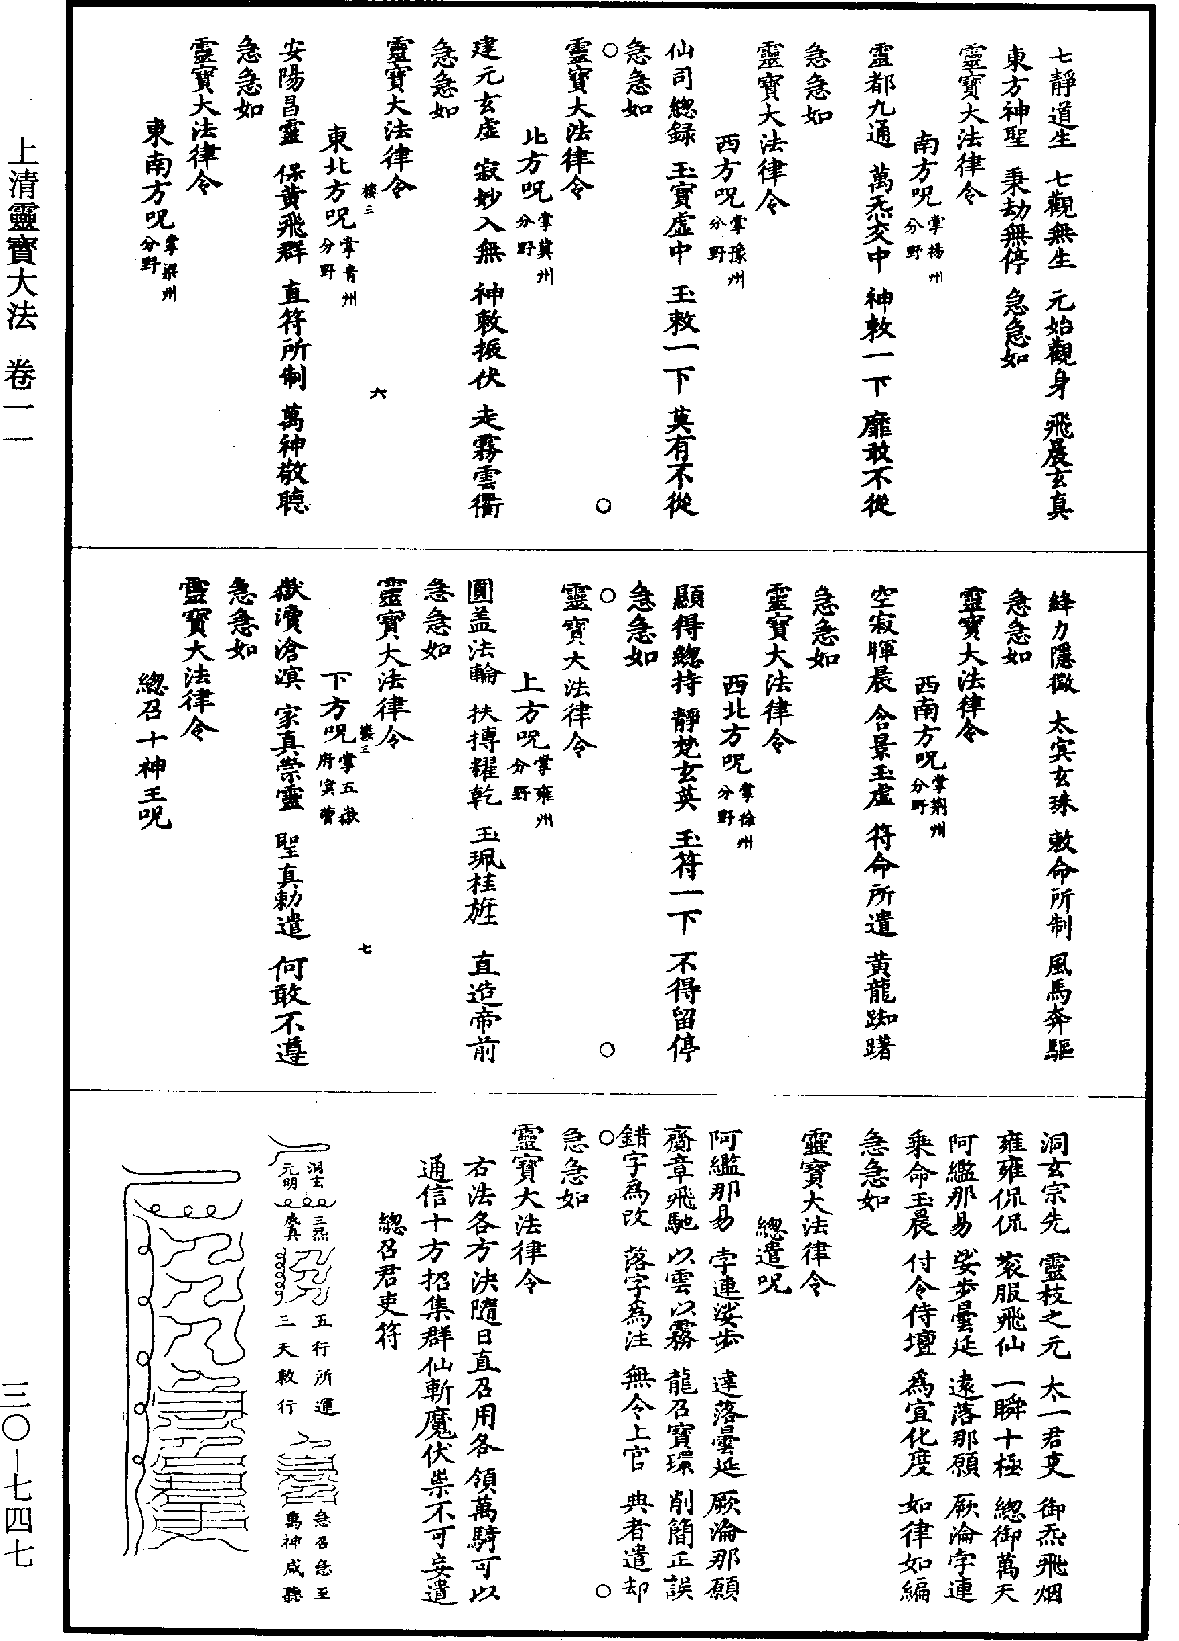 七靜道生　七觀無生　元始觀身　飛晨玄真
東方神聖　秉劫無停　急急如
靈寶大法律令
南方呪掌楊州分野
靈都九通　萬炁交中　神敕一下　靡敢不從
急急如
靈寶大法律令
西方呪掌豫州分野
仙司總録　玉寶虛中　玉敕一下　莫有不從
急急如
靈寶大法律令
北方呪掌冀州分野
建元玄虛　寂妙入無　神敕振伏　走霧雲衢
急急如
靈寶大法律令
六
東北方呪掌青州分野
安陽昌靈　保黄飛群　直符所制　萬神敬聽
急急如
靈寶大法律令
東南方呪掌梁州分野
絳力隱微　太宾玄珠　敕命所制　風馬奔驅
急急如
靈寶大法律令
西南方呪掌荆州分野
空寂暉晨　合景玉虛　符命所遣　黄龍踟躇
急急如
靈寶大法律令
西北方呪掌徐州分野
顯得總持　靜梵玄英　玉符一下　不得留停
急急如
靈寶大法律令
上方呪掌雍州分野
圓盖法輪　扶摶耀乾　玉珮桂旌　直造帝前
急急如
靈寶大法律令
七
下方呪掌五嶽府宾曹
嶽瀆滄溟　家真崇靈　聖真勑遣　何敢不遵
急急如
靈寶大法律令
總召十神王呪
洞玄宗先　靈枝之元　太一君吏　御炁飛烟
雍雍侃侃　衮服飛仙　一瞬十極　總御萬天
阿𦌾那易　娑步曇延　遠落那願　厥淪字連
乘命玉晨　付令侍壇　為宣化度　如律如編
急急如
靈寶大法律令
總遣呪
阿𦌾那易　字連娑步　達落曇延　厥淪那願
齋章飛馳　以雲以霧　龍召寶環　削簡正誤
錯字為改　落字為注　無令上官　典者遣却
急急如
靈寶大法律令
右法各方決隨日直召用各領萬騎可以
通信十方招集群仙斬魔伏祟不可妄遣
總召君吏符
洞玄元明
三炁
五行所運
三天敕行
急召急至
萬神咸聽
上清靈寶大法　卷一一
三〇—七四七